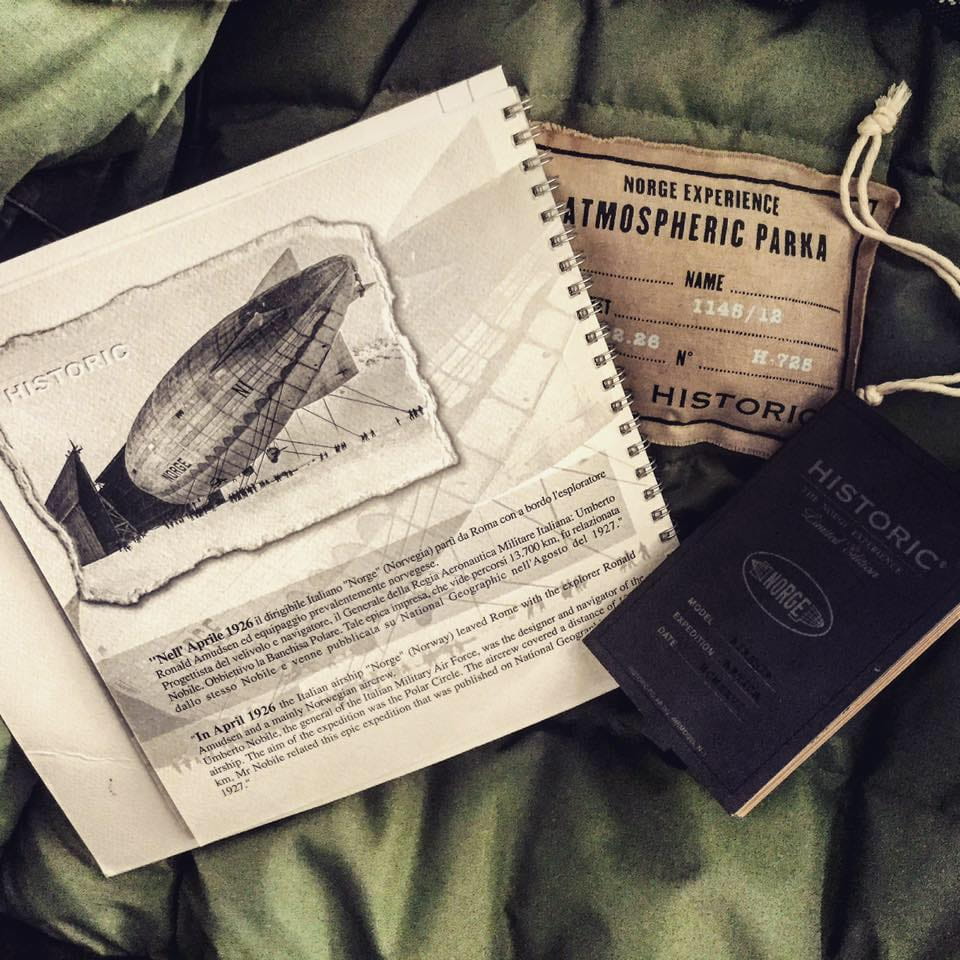 HISTORIC
N
NORGE
"Nell' Aprile 1926 il dirigibile Italiano "Norge" (Norvegia) partì da Roma con a bordo l'esploratore
Ronald Amudsen ed equipaggio prevalentemente norvegese.
Progettista del velivolo e navigatore, il Generale della Regia Aeronautica Militare Italiana: Umberto
Nobile. Obbiettivo la Banchisa Polare. Tale epica impresa, che vide percorsi 13.700 km, fu relazionata
dallo stesso Nobile e venne pubblicata su National Geographic nell'Agosto del 1927."
"In April 1926 the Italian airship "Norge" (Norway) leaved Rome with the explorer Ronald
Amudsen and a mainly Norwegian aircrew.
Umberto Nobile, the general of the Italian Military Air Force, was the designer and navigator of the
airship. The aim of the expedition was the Polar Circle. The aircrew covered a distance of
km, Mr Nobile related this epic expedition that was published on National
1927."
NORGE EXPERIENCE
ATMOSPHERIC PARKA
NAME
1148/12
2.26 N° H.725
HISTORIC
HISTORIC
Limited Edition
NORGE
MODEL
EXPEDITION
DATE